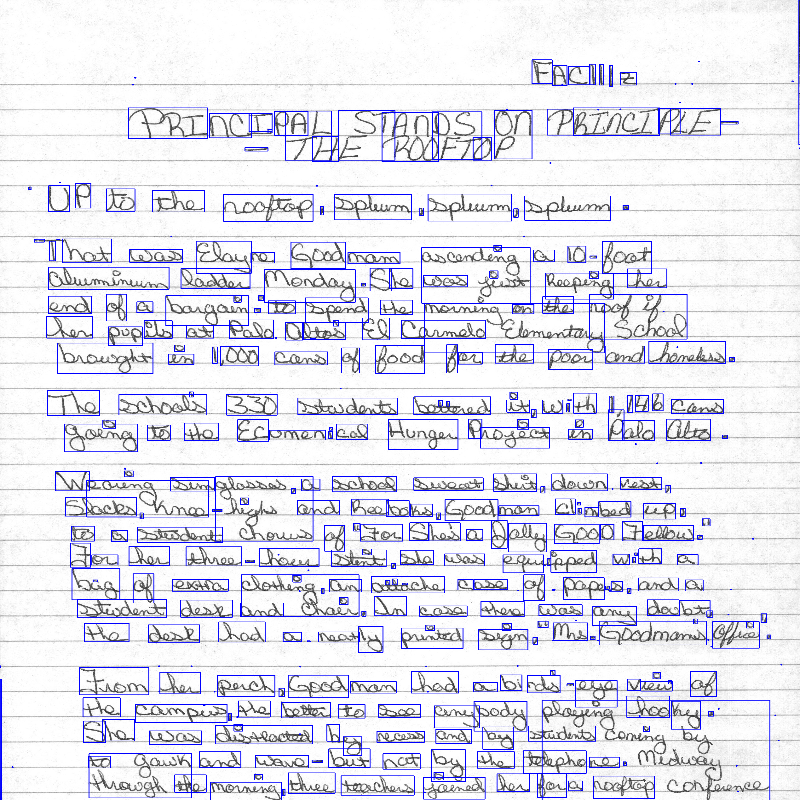 PRINCIPAL STANDS ON PRINCIPLE—
— THE ROOFTOP
UP to the rooftop. spleum. spleum, spleum.
That was Elayne Goodman ascending a 10-foot
aluminium ladder Monday. She was just keeping her
end of a bargain: to spend the morning on the roof if
her pupils at Palo Alto's El Carmelo Elementary School
brought in 1,000 cans of food for the poor and homeless.
The school's 330 students bettered it, with 1,146 cans
going to the Ecumenical Hunger Project in Palo Alto.
Wearing sunglasses, a school sweat shirt, down vest,
Slacks, Knee-highs and Reeboks, Goodman climbed up,
to a student chorus of "For She's a Jolly GOOD Fellow."
For her three-hour stint, she was equipped with a
bag of extra clothing, an attache case of papers, and a
student desk and Chair. In case there was any doubt,
the desk had a neatly printed sign, "Mrs. Goodman's Office."
From her perch, Goodman had a birds-eye view of
the campus, the better to see anybody playing hookey.
She was distracted by recess and by students coming by
to gawk and wave—but not by the telephone. Midway
through the morning, three teachers joined her for a rooftop conference